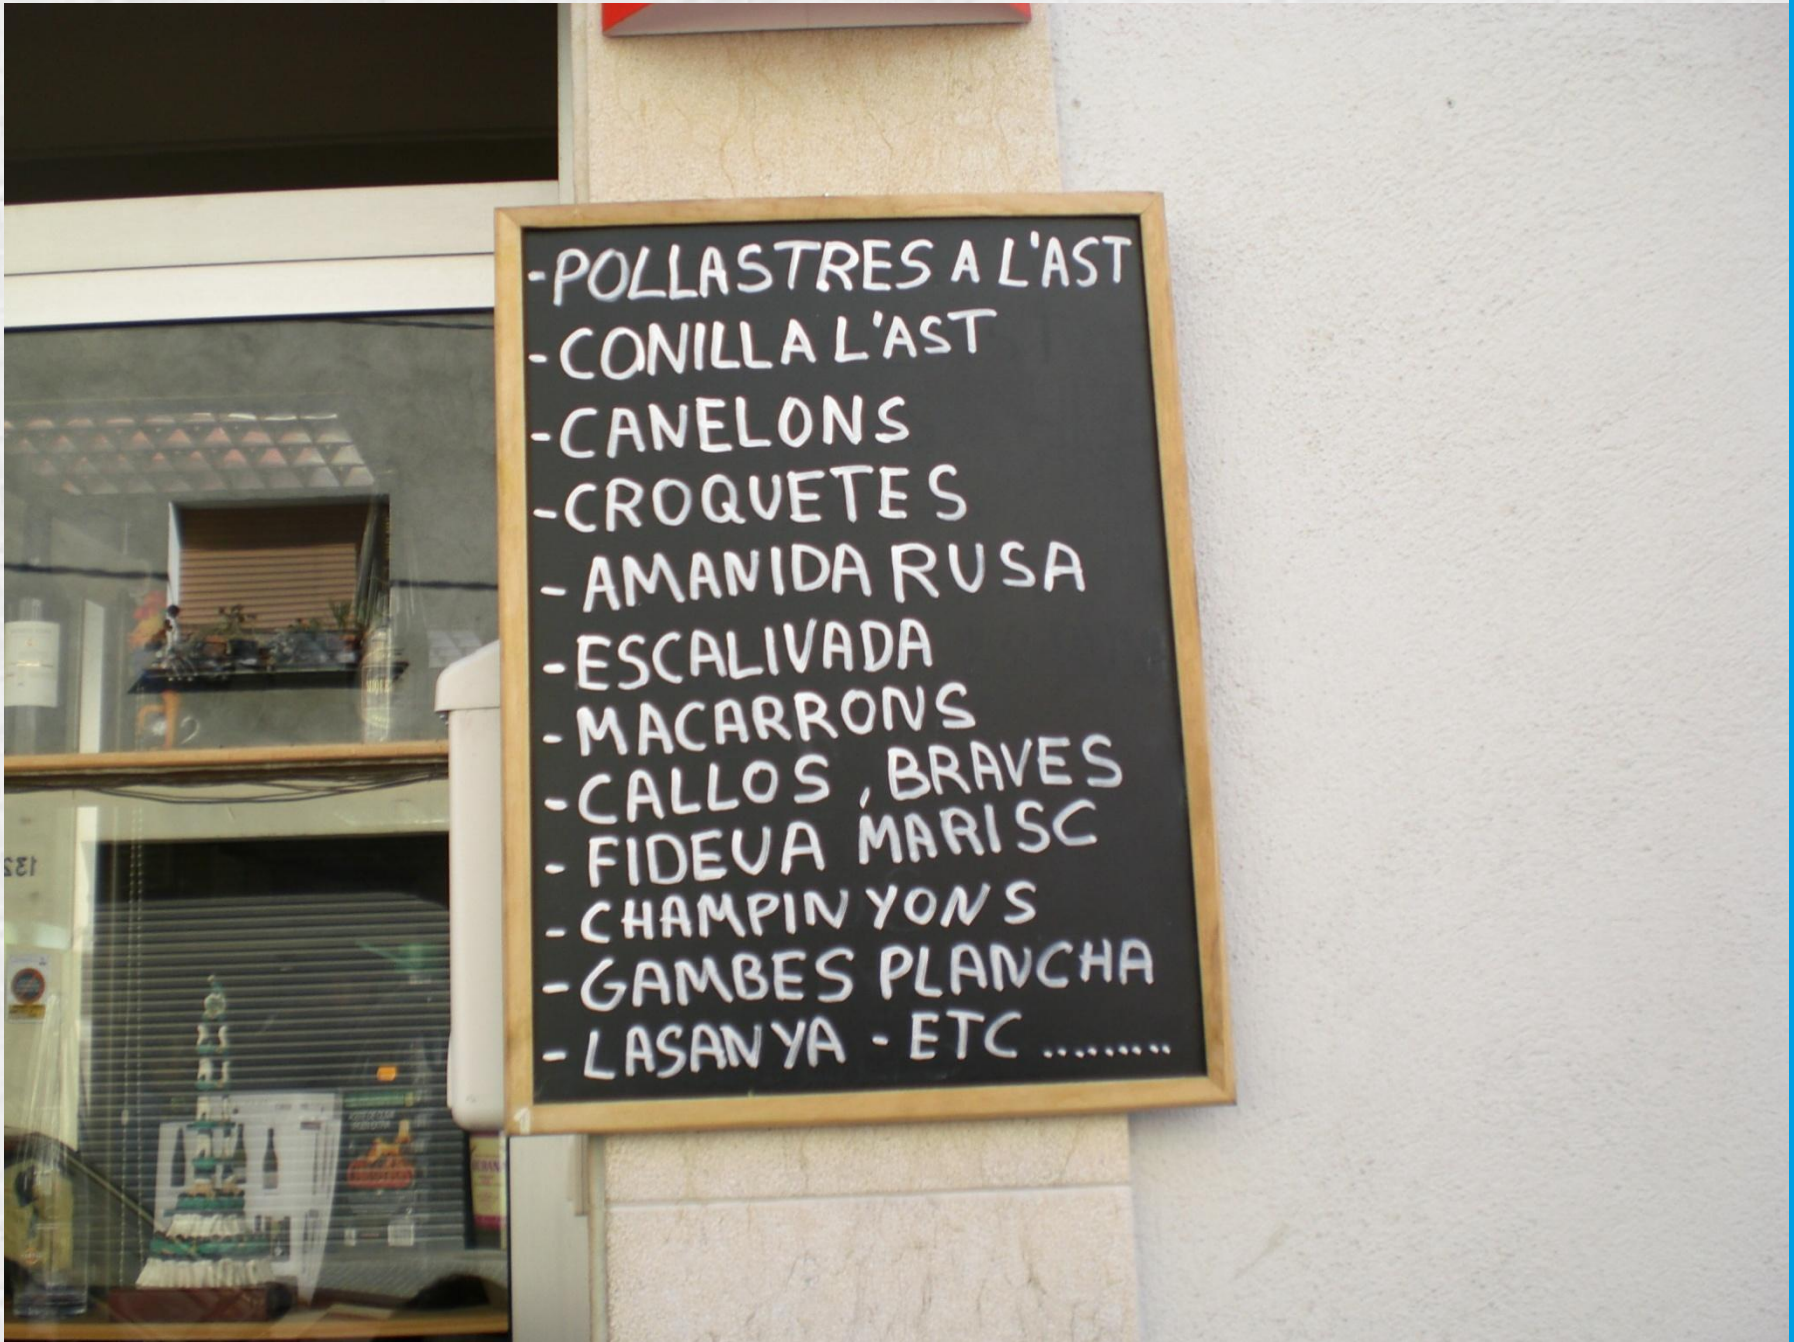 -POLLASTRES A L'AST
-CONILL A L'AST
-CANELONS
-CROQUETES
- AMANIDA RUSA
-ESCALIVADA
-MACARRONS
-CALLOS, BRAVES
- FIDEUA MARISC
-CHAMPINYONS
-GAMBES PLANCHA
- LASANYA - ETC .........
132